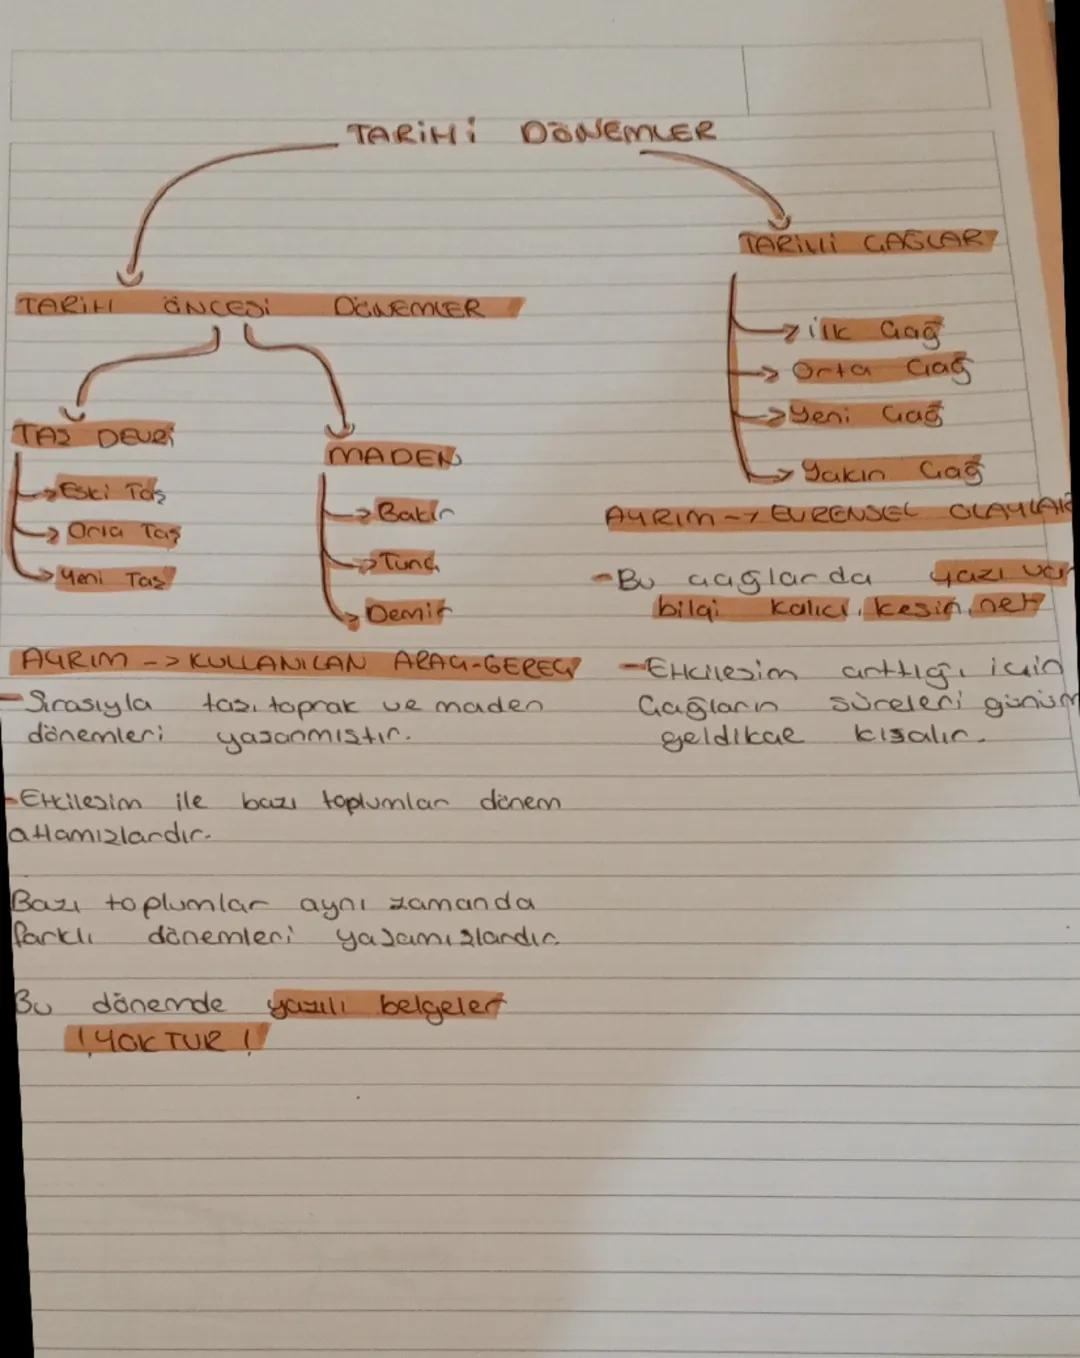 TARİHİ DÖNEMLER
TARİH ÖNCESİ DÖNEMLER
TAŞ DEVRİ
Eski Taş
Orta Taş
Yeni Taş
MADEN
Bakır
Tunç
Demir
AYRIM -> KULLANILAN ARAÇ-GEREÇ
- Sırasıyla taş, toprak ve maden
dönemleri yaşanmıştır.
- Etkileşim ile bazı toplumlar dönem
atlamışlardır.
Bazı toplumlar aynı zamanda
farklı dönemleri yaşamışlardır.
Bu dönemde yazılı belgeler
! YOKTUR !
TARİHİ ÇAĞLAR
İlk Çağ
Orta Çağ
Yeni Çağ
Yakın Çağ
AYRIM -> EVRENSEL OLAYLAR
- Bu çağlarda yazı var
bilgi kalıcı, kesin, net
- Etkileşim arttığı için
Çağların süreleri
geldikçe kısalır.